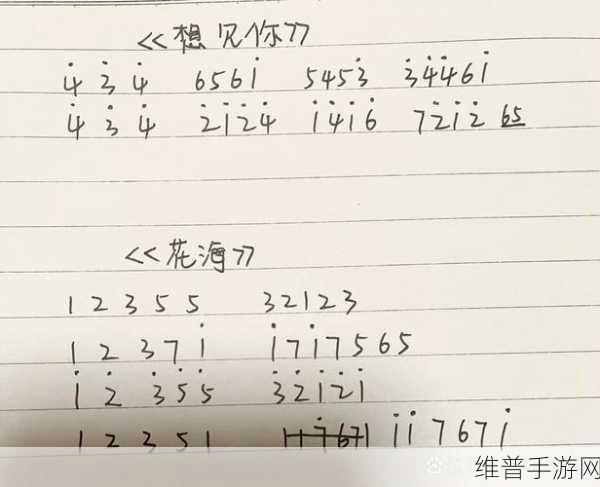 <<想见你>>
4̇ 3̇ 4̇ 6561̇ 5453̇ 3̇4̇4̇61̇
4̇ 3̇ 4̇ 2̇1̇2̇4̇ 1̇4̇1̇6 72̇1̇2̇ 65
<<花海>>
1 2 3 5 5 32123
1 2 3 7 1̇ 1̇71̇7565
1̇ 2̇ 3̇ 5̇ 5̇ 3̇2̇1̇2̇1̇
1 2 3 5 1 117̇671 1̇1̇7671̇
维普手游网